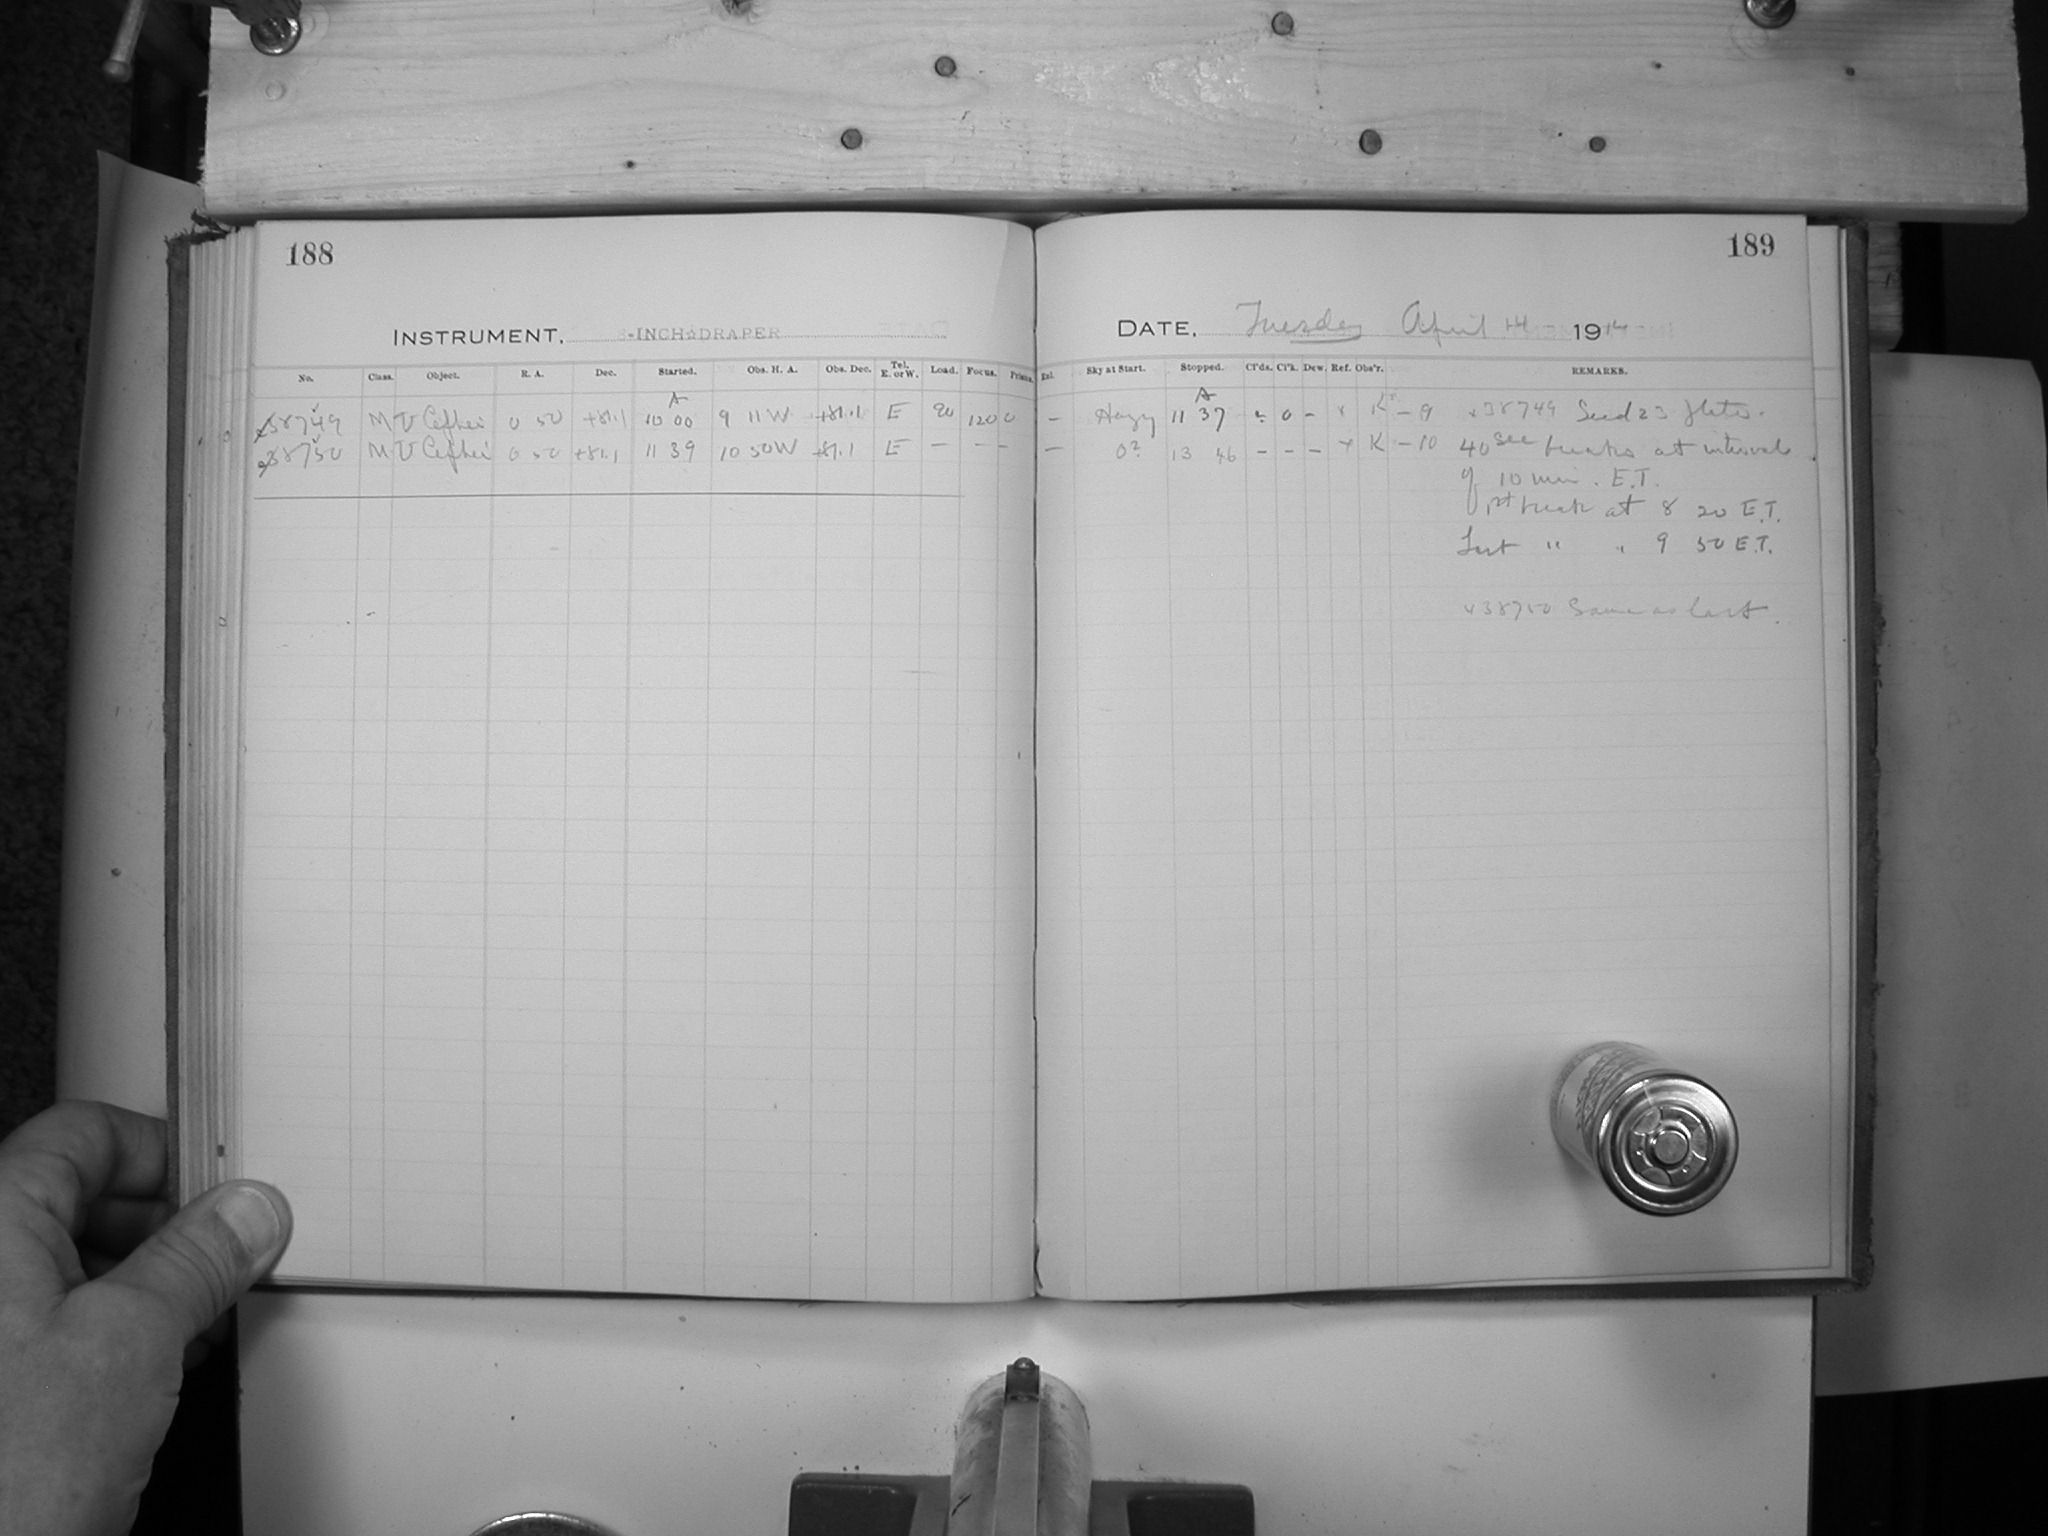 188
INSTRUMENT, 8-INCH DRAPER
No. Class. Object. R. A. Dec. Started. Obs. H. A. Obs. Dec. Tel. E. or W. Load. Focus. Prisms.
A
38749 M U Cephei 0 50 +81.1 10 00 9 11 W +81.1 E 20 120 0
38750 M U Cephei 0 50 +81.1 11 39 10 50 W +81.1 E — — –
189
DATE, Tuesday April 14 1914
Exl. Sky at Start. Stopped. Cl'ds. Cl'k. Dew. Ref. Obs'r. REMARKS.
A
– Hazy 11 37 0 – x K – 9 x38749 Seed 23 plates.
— 0? 13 46 – – – x K – 10 40 sec breaks at intervals
of 10 min. E.T.
1st break at 8 20 E.T.
Last " " 9 50 E.T.
x38750 Same as last.